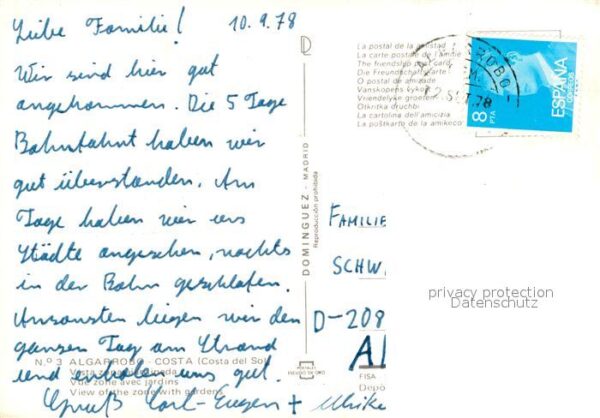 Liebe Familie! 10.9.78
Wir sind hier gut
angekommen. Die 5 Tage
Bahnfahrt haben wir
gut überstanden. Am
Tage haben wir uns
Städte angesehen, nachts
in der Bahn geschlafen.
Ansonsten liegen wir den
ganzen Tag am Strand
und erholen uns gut.
Gruß Carl-Eugen + Ulrike
N.º 3 ALGARROBO - COSTA (Costa del Sol)
Vista zona ajardinada
Vue zone avec jardins
View of the zone with gardens
DOMINGUEZ - MADRID
Reproducción prohibida
La postal de la amistad
La carte postale de l'amitié
The friendship post card
Die Freundschaftskarte!
O postal de amizade
Vanskapens kykort
Vriendelyke groeten
Otkritka druchbi
La cartolina dell'amicizia
La poŝtkarto de la amikeco
12 SET. 78
ESPAÑA
CORREOS
8 PTA
FAMILIE
SCHW
D-208
privacy protection
Datenschutz
FISA
Depó